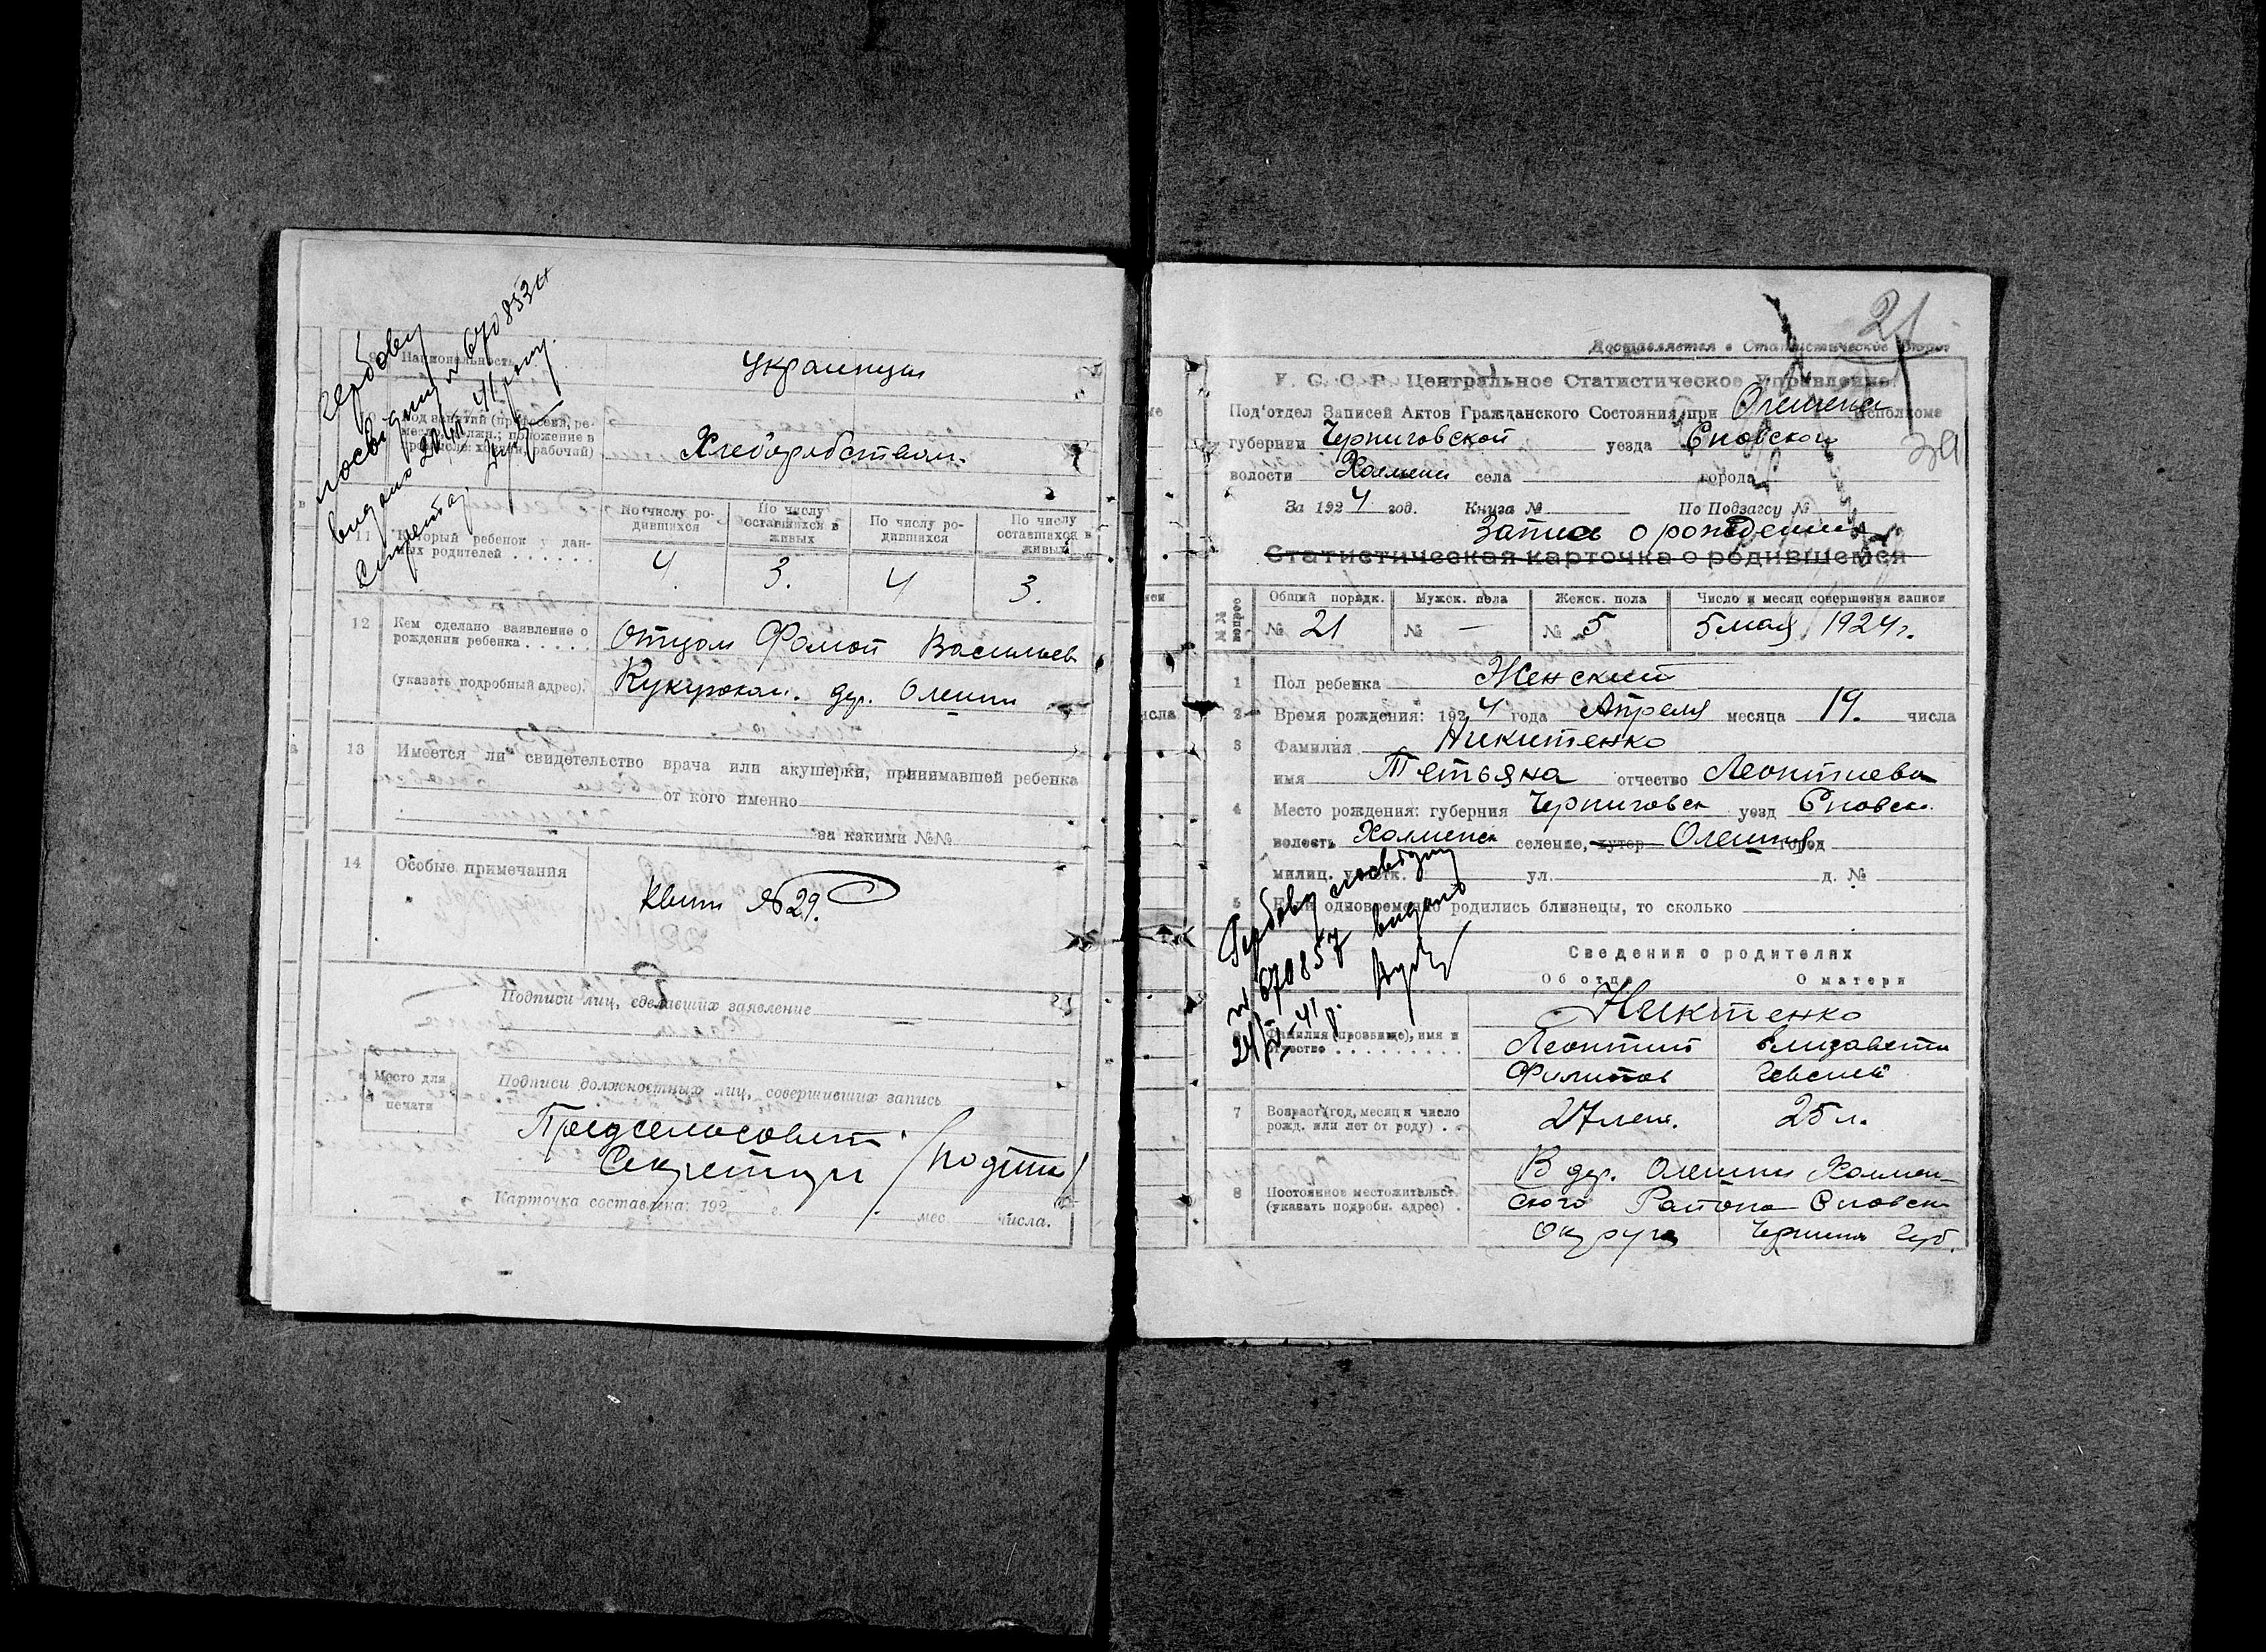 гербову
посвідку № 670853
видано 24/IV 41 року.
Секретар
9 Национальность
Украинцы
10 Род занятий (профессия, ре-
месло, должн.; положение в
промысле: хозяин, рабочий)
Хлеборобством.
11 Который ребенок у дан-
ных родителей . . . . .
По числу ро-
дившихся
По числу
оставшихся в
живых
По числу ро-
дившихся
По числу
оставшихся в
живых
4 3. 4 3.
12 Кем сделано заявление о
рождении ребенка . . . . .
(указать подробный адрес).
Отцом Фомой Васильев
дер. Олешни
13 Имеется ли свидетельство врача или акушерки, принимавшей ребенка
от кого именно
за какими №№
14 Особые примечания
Квит №29.
Подписи лиц, сделавших заявление
Место для
печати
Подписи должностных лиц, совершивших запись
Предсельсовета
Секретарь /подпи/
Карточка составлена: 192 г. мес. числа.
21
Доставляется в Статистическое Бюро
У. С. С. Р. Центральное Статистическое Управление.
Под'отдел Записей Актов Гражданского Состояния при Олешенск исполкоме
губернии Черниговской уезда Сновского
волости Холменск села города
За 1924 год. Книга № По Подзагсу №
Запись о рождении
Статистическая карточка о родившемся
№№ вопрос
Общий порядк. Мужск. пола Женск. пола Число и месяц совершения записи
№ 21 № — № 5 5 мая 1924 г.
1 Пол ребенка Женский
2 Время рождения: 1924 года Апреля месяца 19. числа
3 Фамилия Никитенко
имя Тетьяна отчество Леонтиева
4 Место рождения: губерния Черниговск уезд Сновск.
волость Холменск селение, хутор Олешня город
милиц. участк. ул. д. №
5 Если одновременно родились близнецы, то сколько
Гербову посвідку
№ 670857 видано
24/IV-41 р.
Сведения о родителях
Об отце О матери
6 Фамилия (прозвище), имя и
отчество . . . . . . . . . .
Никтенко
Леонтий Елизавета
Филипов
7 Возраст (год, месяц и число
рожд. или лет от роду) . .
27 лет. 25 л.
8 Постоянное местожительст.
(указать подробн. адрес) .
В дер. Олешни Холмен
ского Района Сновск
Округа Черниг Губ.